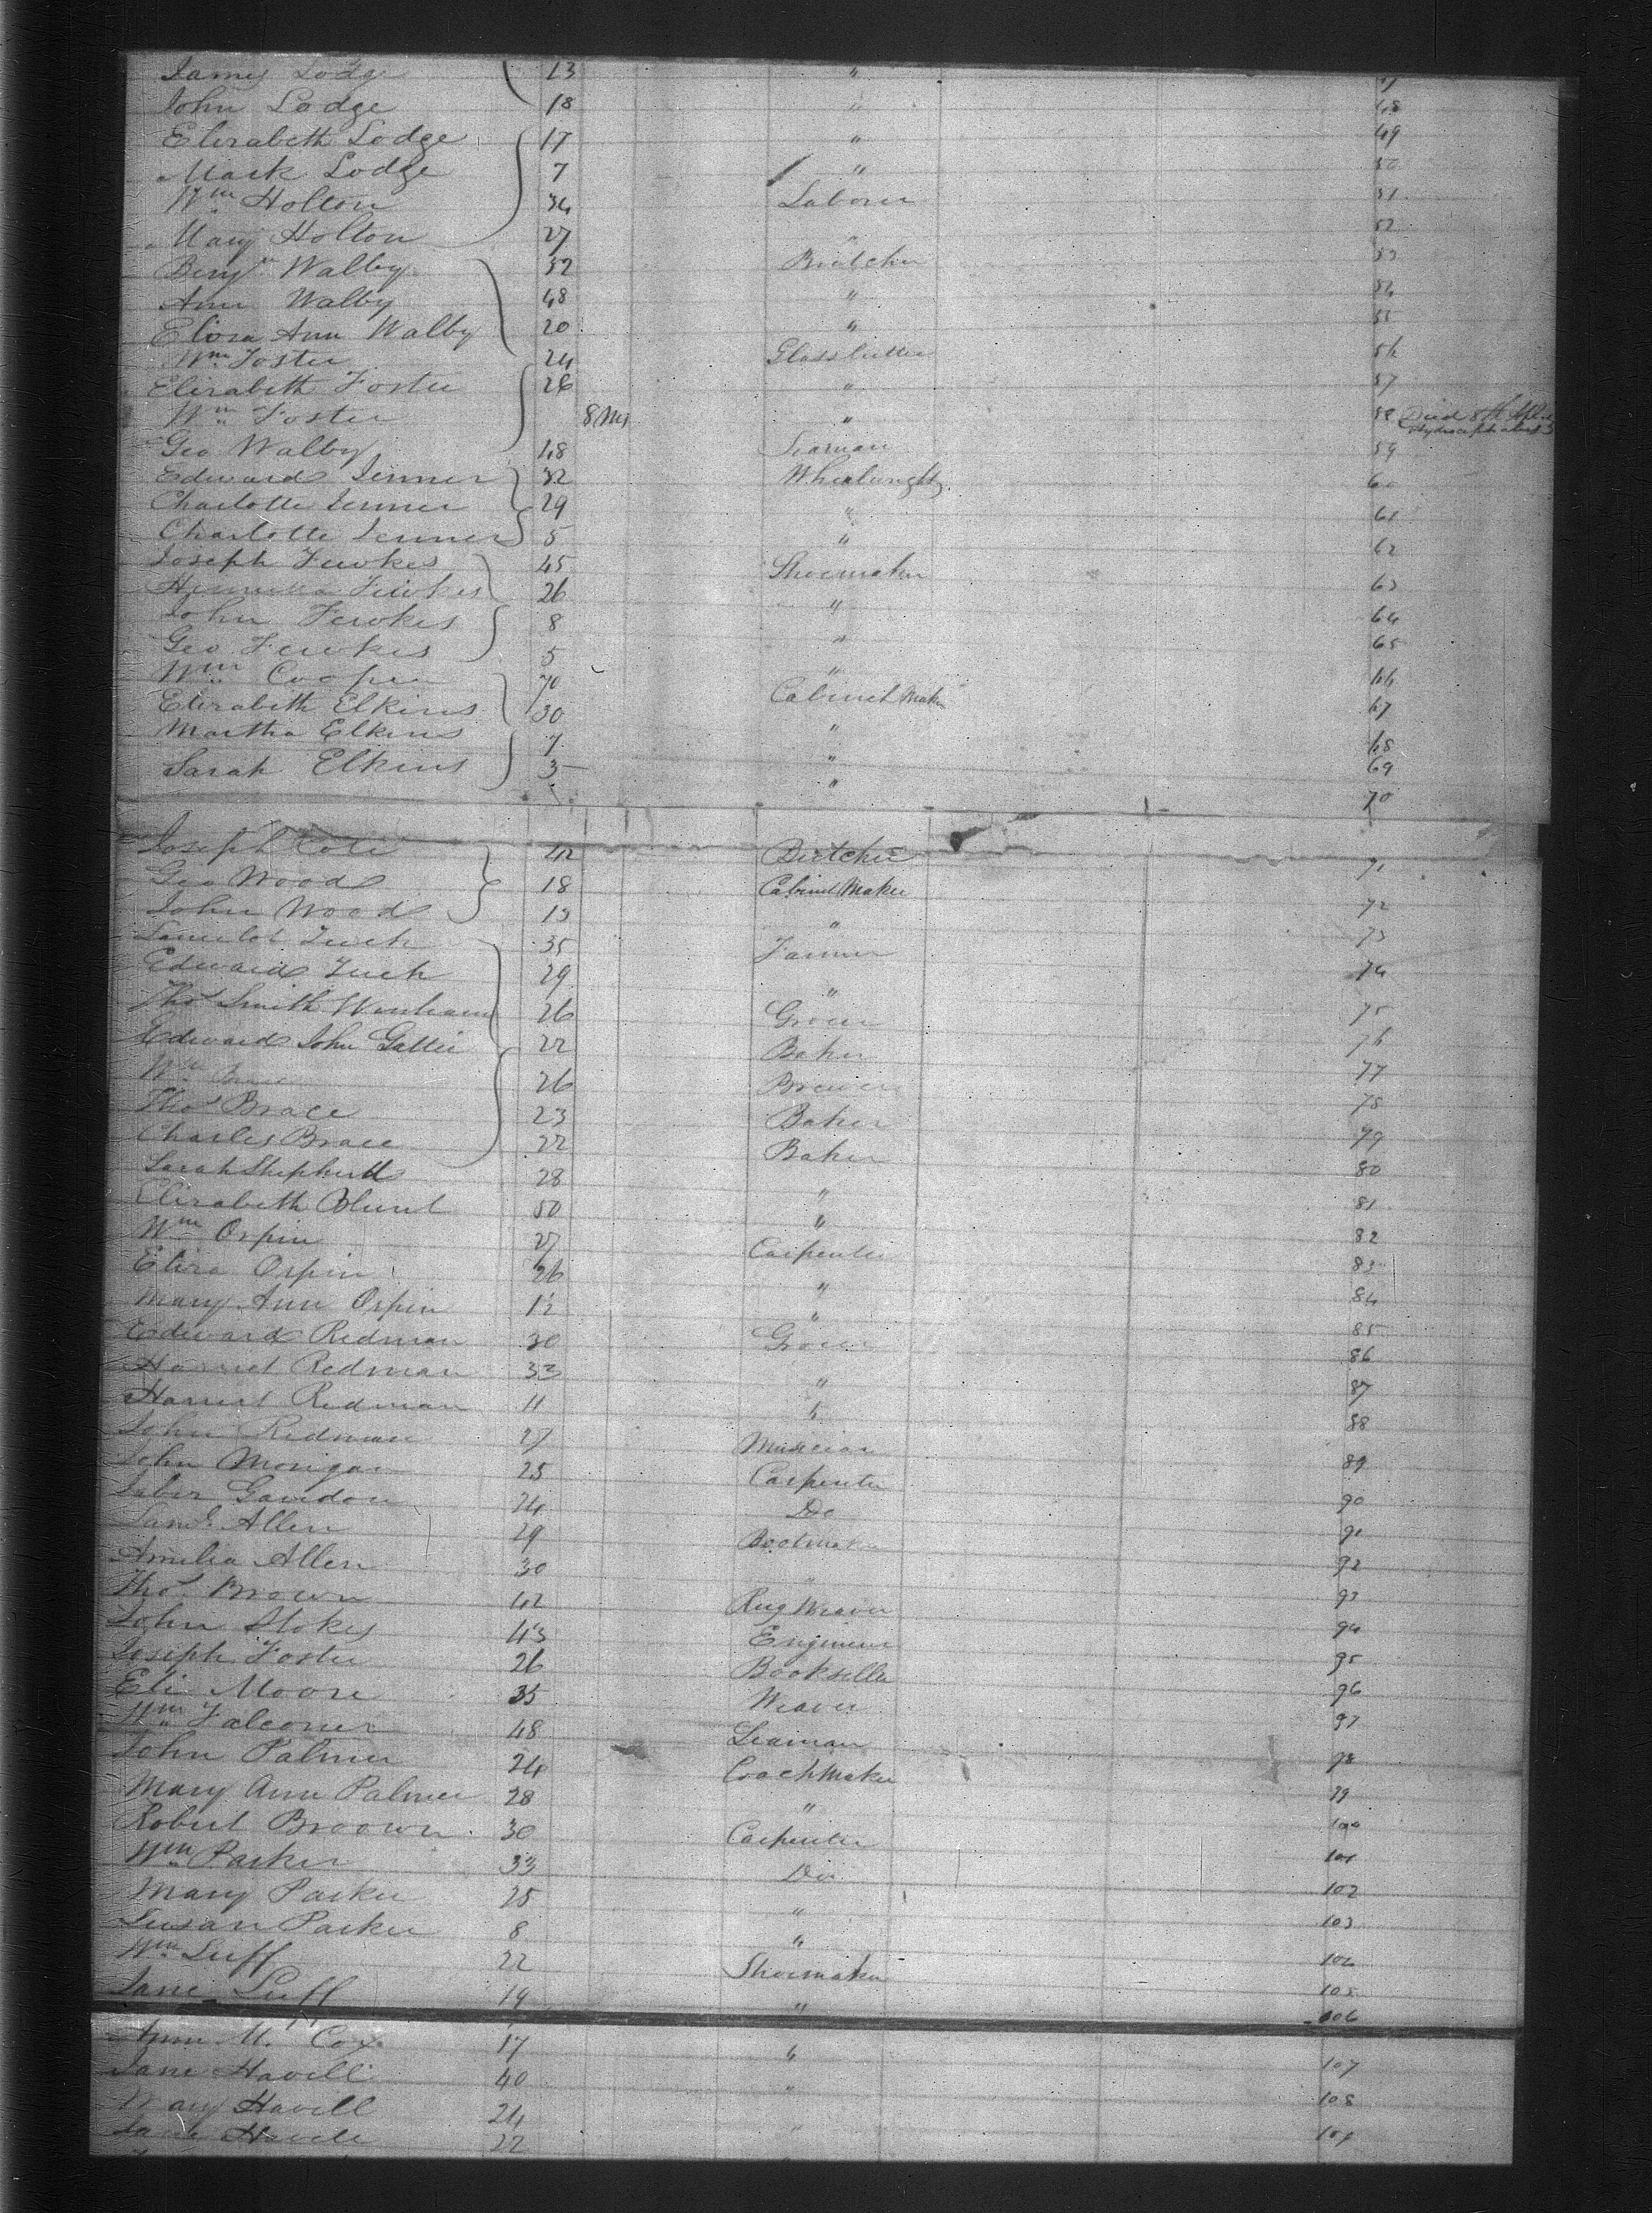 James Lodge 13 "
John Lodge 18 " 48
Elizabeth Lodge 17 " 49
Mark Lodge 7 " 50
Wm Holton 34 Laborer 51
Mary Holton 27 " 52
Benjn Walby 52 Butcher 53
Ann Walby 48 " 54
Eliza Ann Walby 20 " 55
Wm Foster 24 Glasscutter 56
Elizabeth Foster 26 " 57
Wm Foster 8 Ms " 58 Died 8th Apl Hydrocephalus
Geo Walby 18 Seaman 59
Edward Jenner 32 Wheelwright 60
Charlotte Jenner 29 " 61
Charlotte Jenner 5 " 62
Joseph Fewkes 45 Shoemaker 63
Fewkes 26 " 64
John Fewkes 8 " 65
Geo Fewkes 5 " 66
Wm Cooper 70 Cabinet Maker 67
Elizabeth Elkins 30 " 68
Martha Elkins 7 " 69
Sarah Elkins 3 " 70
Joseph Cole 42 Butcher 71
Geo Wood 18 Cabinet Maker 72
John Wood 15 " 73
Tuch 35 Farmer 74
Edward Tuch 29 " 75
Thos Smith 26 Grocer 76
Edward John Gallie 22 Baker 77
Wm 26 Brewer 78
Thos Brace 23 Baker 79
Charles Brace 22 Baker 80
Sarah Shepherd 28 " 81
Elizabeth Blunt 50 " 82
Wm Orpin 27 Carpenter 83
Eliza Orpin 26 " 84
Mary Ann Orpin 12 " 85
Edward Redman 30 Grocer 86
Harriet Redman 33 " 87
Harriet Redman 11 " 88
John Redman 27 Musician 89
John Morigan 25 Carpenter 90
Gavidon 24 Do 91
Saml Allen 29 Bootmaker 92
Amelia Allen 30 " 93
Thos Brown 42 Rug Weaver 94
John Stokes 43 Engineer 95
Joseph Foster 26 Bookseller 96
Eli Moore 35 Weaver 97
Wm Falconer 48 Seaman 98
John Palmer 24 Coach Maker 99
Mary Ann Palmer 28 " 100
Robert Broown 30 Carpenter 101
Wm Parker 33 Do 102
Mary Parker 25 " 103
Susan Parker 8 " 104
Wm Luff 22 Shoemaker 105
Jane Luff 19 " 106
Ann M. Cox 17 " 107
Jane Havell 40 " 108
Mary Havell 24 " 109
Jane Havell 22